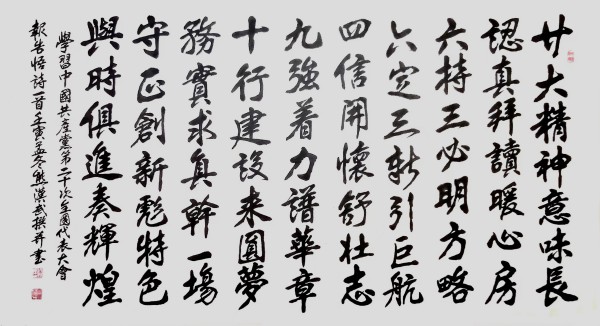 廿大精神意味長
認真拜讀暖心房
六持三必明方略
六定三新引巨航
四信開懷舒壯志
九強着力譜華章
十行建設来圓夢
務實求真幹一場
守正創新彪特色
與時俱進奏輝煌
學習中國共產黨第二十次全國代表大會
報告悟詩一首壬寅孟冬熊漢武撰并書